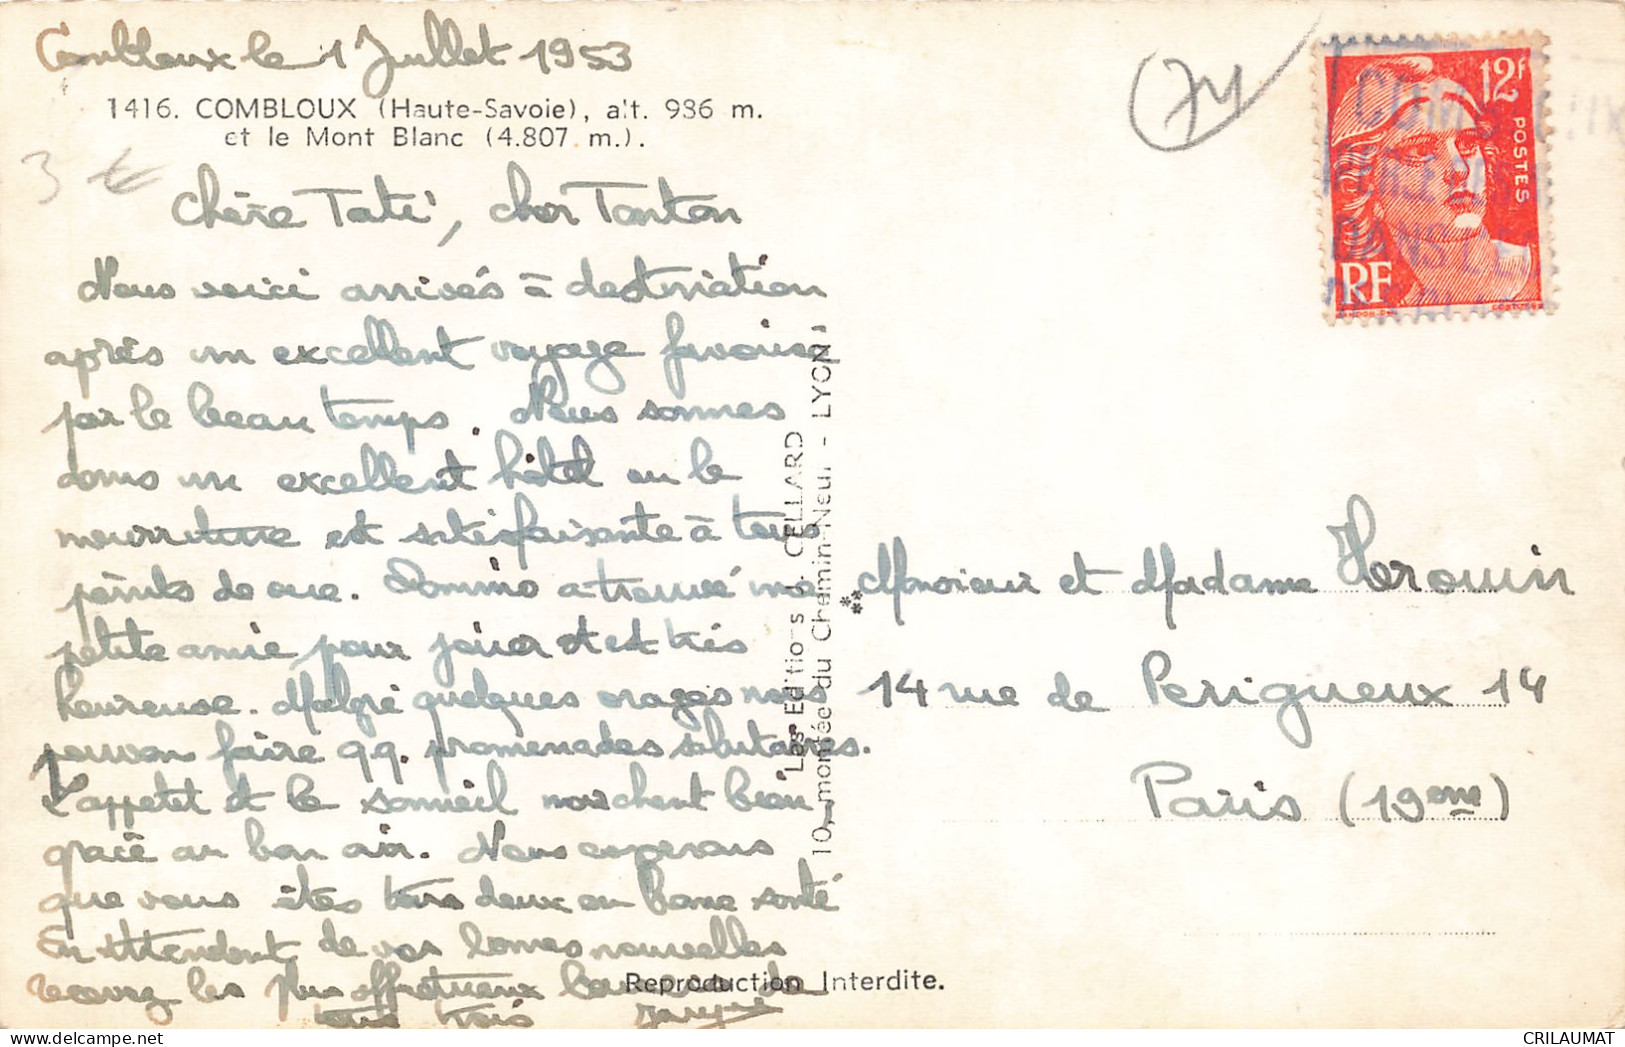 Combloux le 1 Juillet 1953
1416. COMBLOUX (Haute-Savoie), alt. 986 m.
et le Mont Blanc (4.807 m.).
3 €
Chère Tati, cher Tonton
Nous voici arrivés à destination
après un excellent voyage favorisé
par le beau temps. Nous sommes
dans un excellent hôtel ou la
nourriture est satisfaisante à tous
points de vue. Domino a trouvé une
petite amie pour jouer et est très
heureuse. Malgré quelques orages nous
pouvons faire qq. promenades salutaires.
L'appetit et le sommeil marchent bien,
grace au bon air. Nous esperons
que vous êtes tous deux en bonne santé
En attendant de vos bonnes nouvelles
recevez les plus affectueux baisers de
tous trois
Les Editions J. CELLARD
10, montée du Chemin-Neuf - LYON
Reproduction Interdite.
74
12f
POSTES
RF
COM
DANS LE
Monsieur et Madame Herouin
14 rue de Perigueux 14
Paris (19eme)
CRILAUMAT